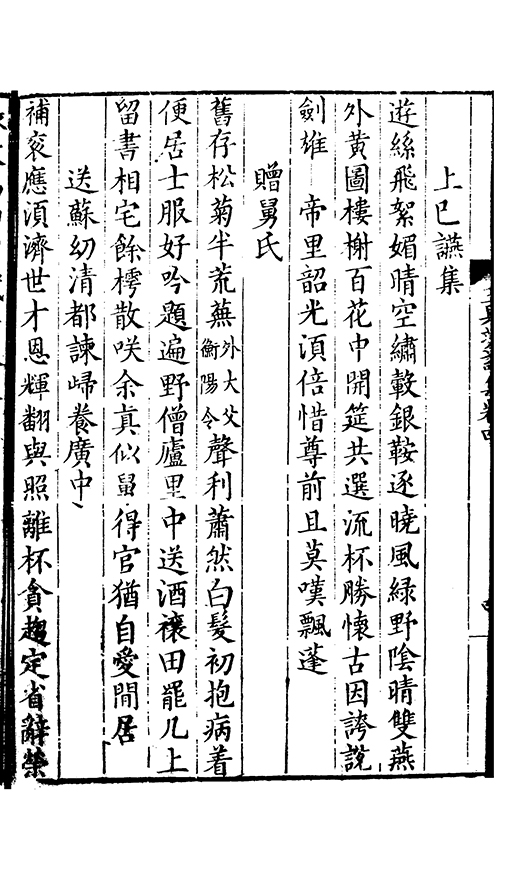 上巳讌集
遊絲飛絮媚晴空繡轂銀鞍逐曉風緑野陰晴雙燕
外黄圖樓榭百花中開筵共選流杯勝懷古因誇説
劍雄　帝里韶光湏倍惜尊前且莫嘆飄蓬
贈舅氏
舊存松菊半荒蕪外大父衡陽令聲利蕭然白髮初抱病着
便居士服好吟題遍野僧廬里中送酒禳田罷几上
留書相宅餘樗散咲余真似舅得官猶自愛閒居
送蘇幼清都諫歸養廣中
補衮應湏濟世才恩輝翻與照離杯貪趨定省辭榮